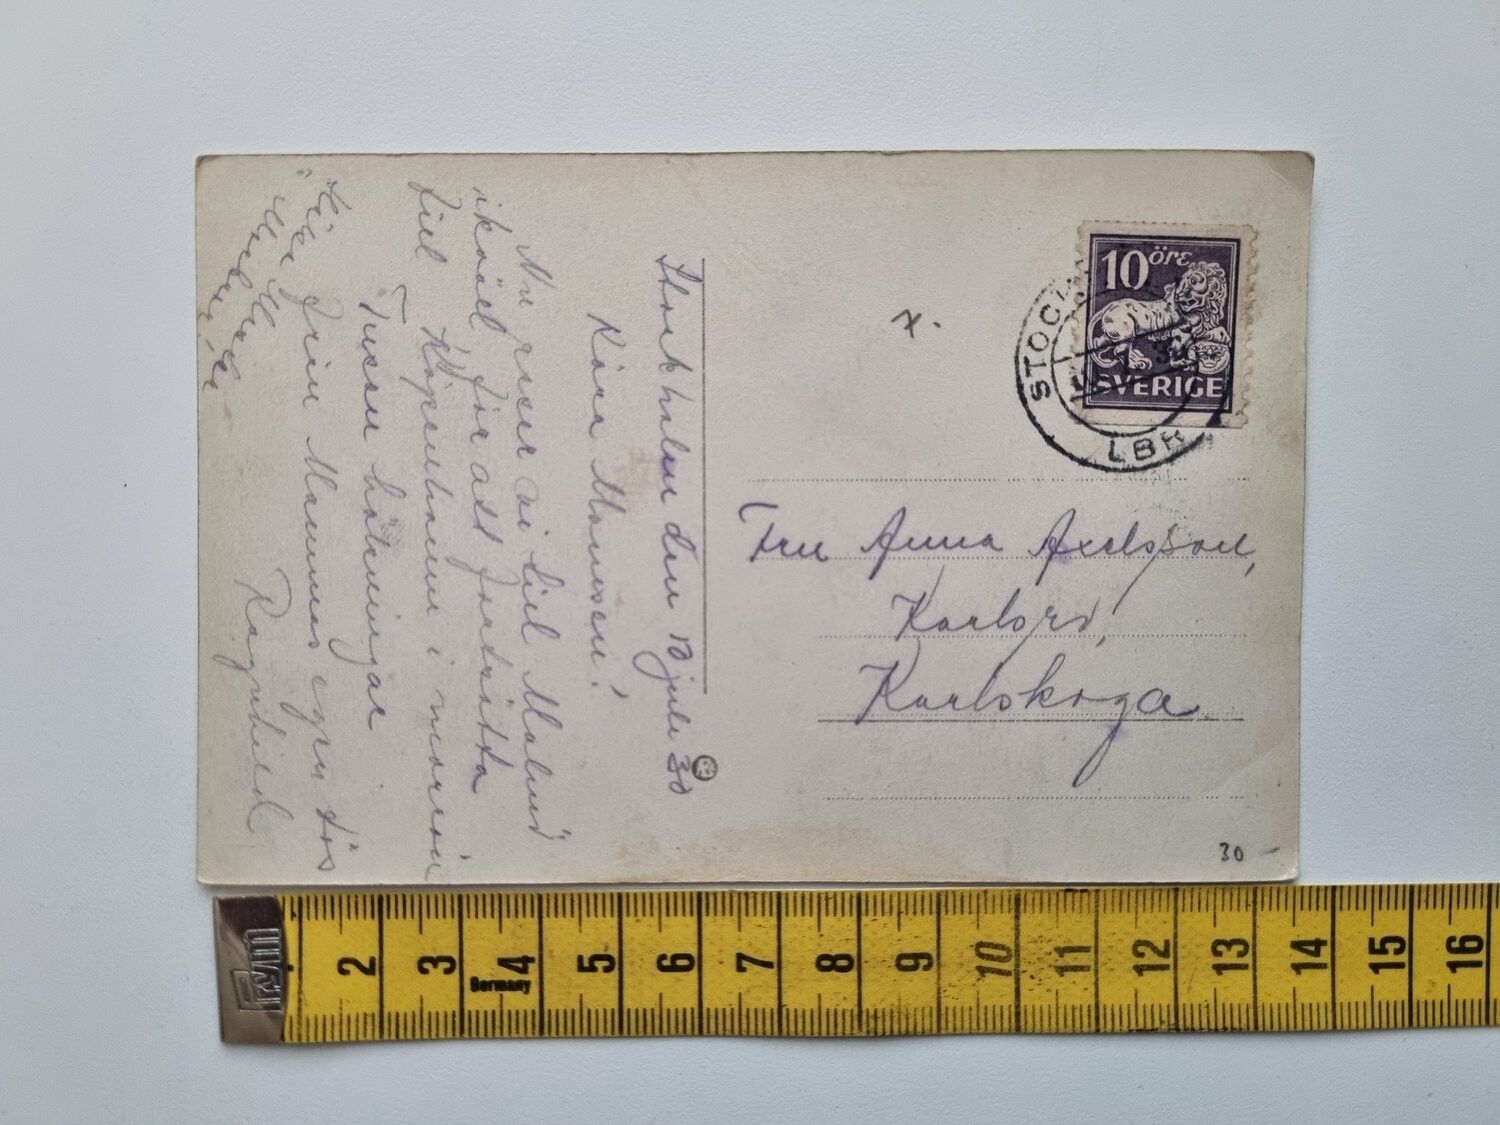 Stockholm den 10 juli 30
Kära Mamsen!
Nu reser vi till Malmö
ikväll för att fortsätta
till Köpenhamn i morron
Tusen hälsningar
från Mammas egen tös
Ragnhild
10 öre
SVERIGE
STOC
LBR
x.
Fru Anna Axelsson,
Karlskoga
30 -
2 3 4 5 6 7 8 9 10 11 12 13 14 15 16
Germany